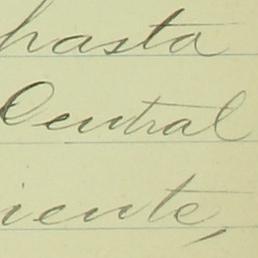 hasta
Central
iente,